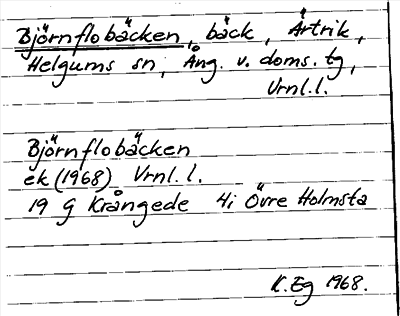 Björnflobäcken, bäck, Ärtrik,
Helgums sn, Ång. v. doms. tg,
Vrnl.l.
Björnflobäcken
ek (1968) Vrnl.l.
19 G Krångede 4i Övre Holmsta
K.Eg 1968.